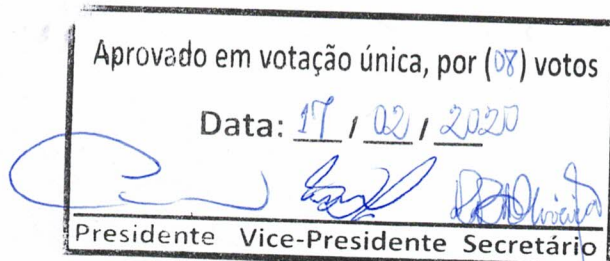 Aprovado em votação única, por (08) votos
Data: 17 / 02 / 2020
Presidente Vice-Presidente Secretário